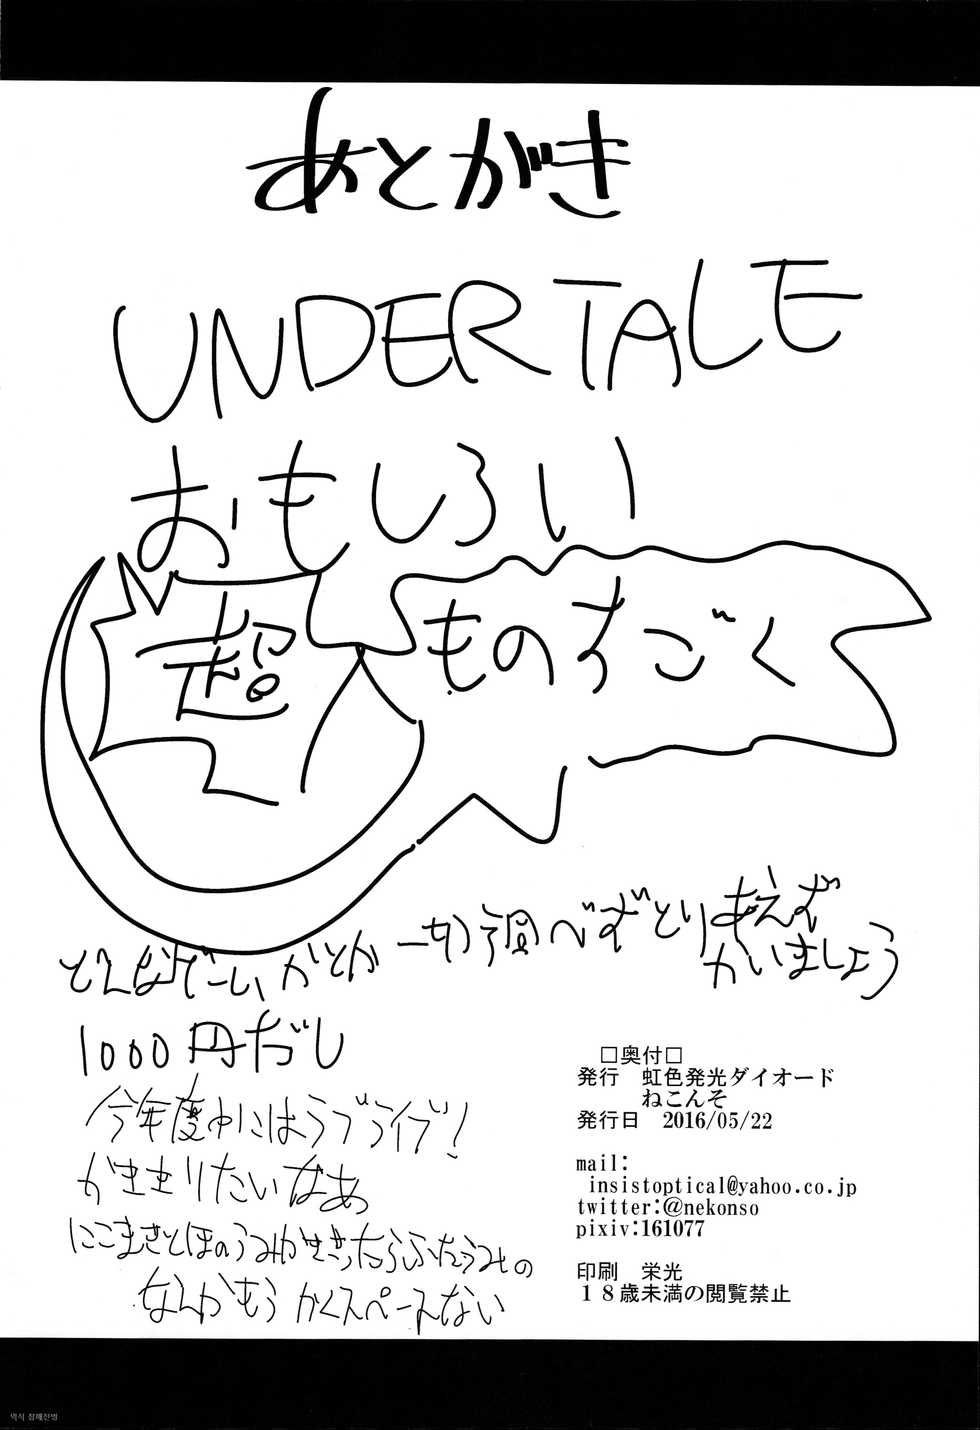 あとがき
UNDERTALE
おもしろい
超
ものすごく
どんなゲームかとか一切調べずとりあえず
かいましょう
1000円だし
今年度中にはラブライブ!
がききりたいなあ
にこまきとほのうみがききったらふたうみの
なんかもうかくスペースない
□奥付□
発行 虹色発光ダイオード
ねこんそ
発行日 2016/05/22
mail:
insistoptical@yahoo.co.jp
twitter:@nekonso
pixiv:161077
印刷 栄光
18歳未満の閲覧禁止